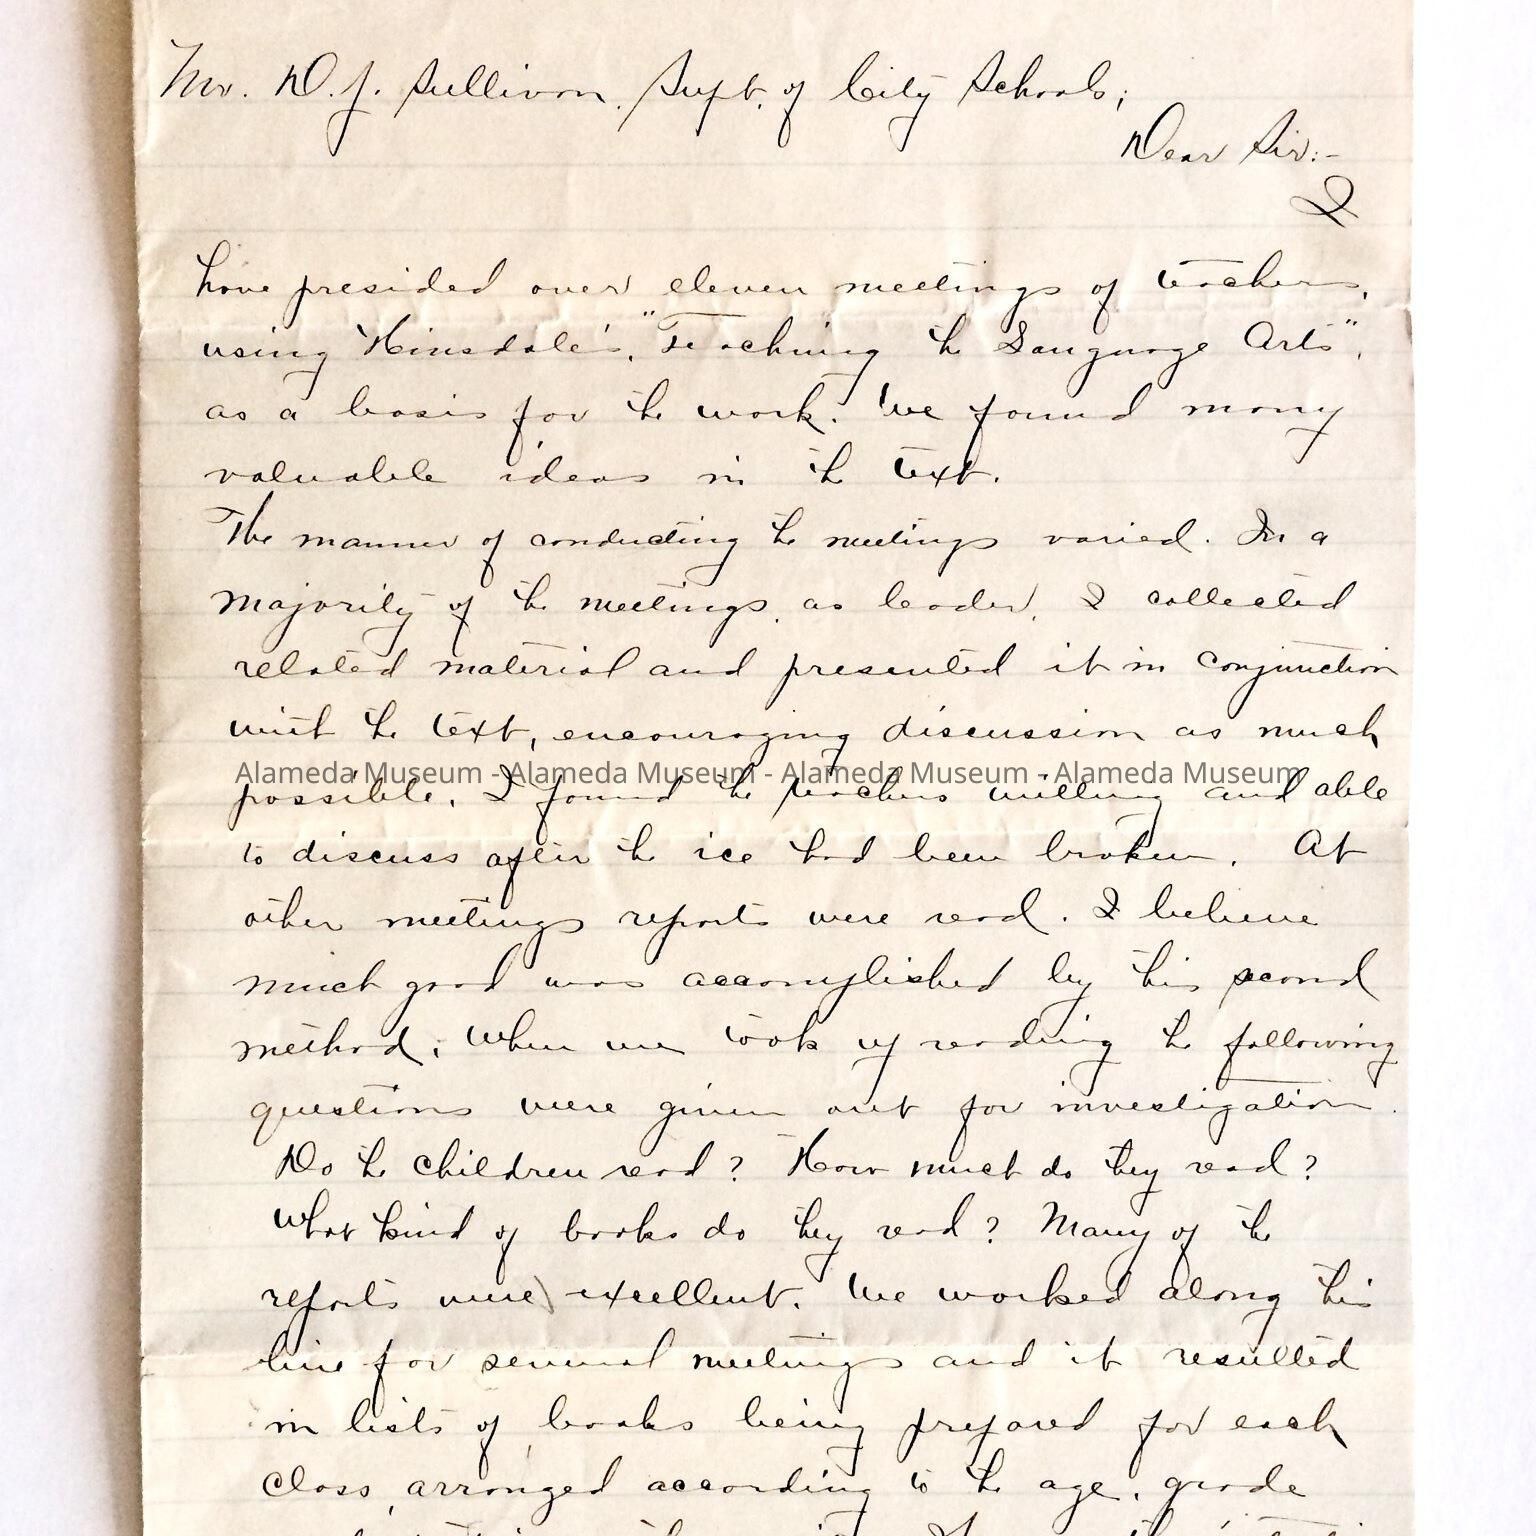 Mr. D. J. Sullivan, Supt. of City Schools;
Dear Sir:-
I
have presided over eleven meetings of teachers,
using Hinsdale's, "Teaching the Language Arts",
as a basis for the work. We found many
valuable ideas in the text.
The manner of conducting the meetings varied. In a
majority of the meetings, as leader, I collected
related material and presented it in conjunction
with the text, encouraging discussion as much
Alameda Museum - Alameda Museum - Alameda Museum - Alameda Museum
possible. I found the teachers willing and able
to discuss after the ice had been broken. At
other meetings reports were read. I believe
much good was accomplished by this second
method. When we took up reading the following
questions were given out for investigation.
Do the children read? How much do they read?
What kind of books do they read? Many of the
reports were excellent. We worked along this
line for several meetings and it resulted
in lists of books being prepared for each
class, arranged according to the age, grade